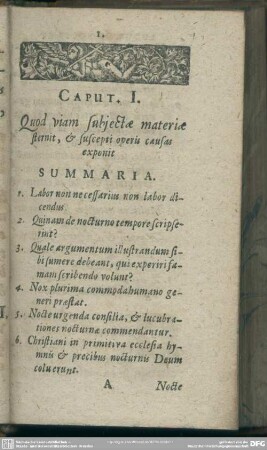 1.
CAPUT. I.
Quod viam subjectæ materiæ
sternit, & suscepti operis causas
exponit
SUMMARIA.
1. Labor non necessarius non labor di-
cendus.
2. Quinam de nocturno tempore scripse-
rint?
3. Quale argumentum illustrandum si-
bi sumere debeant, qui experiri fa-
mam scribendo volunt?
4. Nox plurima commoda humano ge-
neri præstat.
5. Nocte urgenda consilia, & lucubra-
tiones nocturnæ commendantur.
6. Christiani in primitiva ecclesia hy-
mnis & precibus nocturnis Deum
coluerunt.
A Nocte